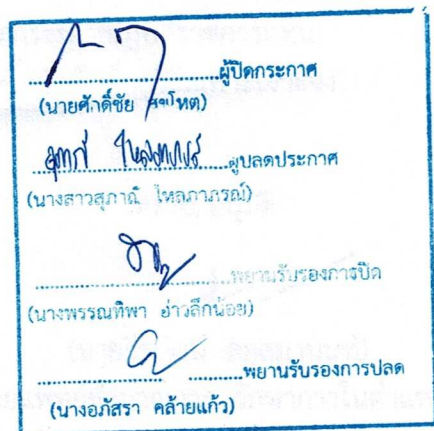 ผู้ปิดประกาศ
(นายศักดิ์ชัย
ผู้ปลดประกาศ
(นางสาวสุภาณี ไหลภาภรณ์)
พยานรับรองการปิด
(นางพรรณทิพา อ่าวลึกน้อย)
พยานรับรองการปลด
(นางอภัสรา คล้ายแก้ว)